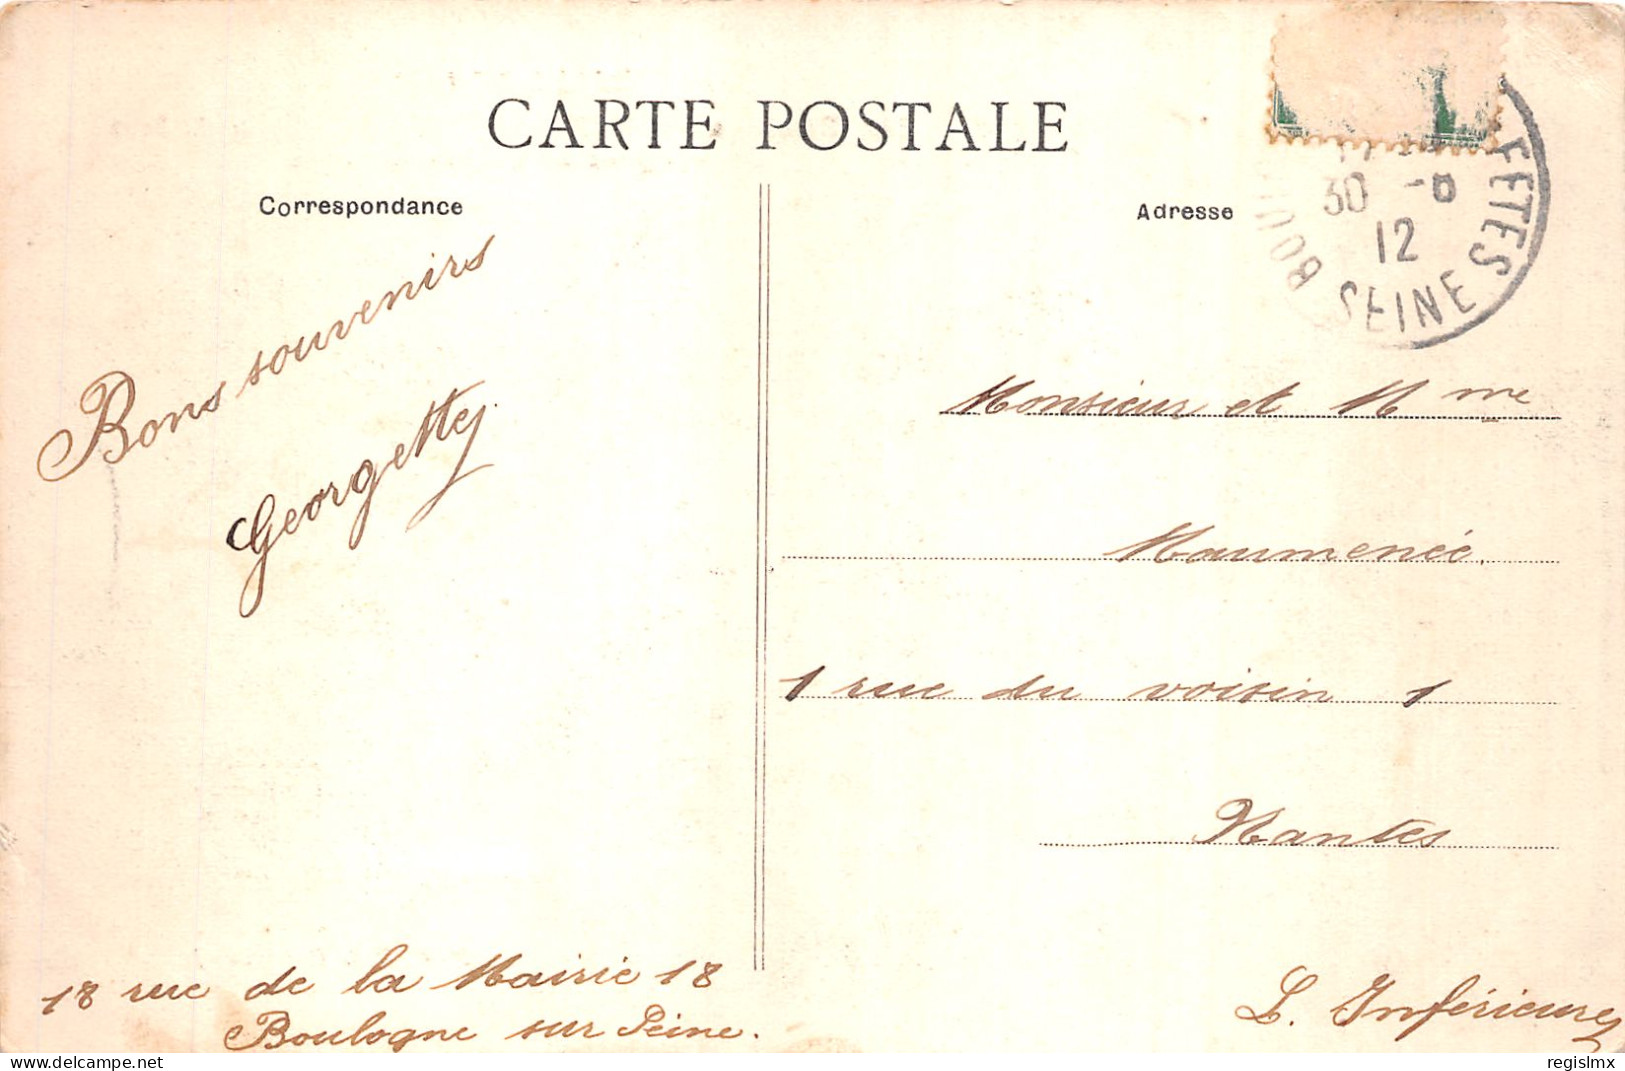 CARTE POSTALE
Correspondance
Adresse
FETES
30 -8
12
SEINE
Bons souvenirs
Georgette
Monsieur et Mme
Maumenée.
1 rue du voisin 1
Nantes
L. Inférieure
18 rue de la Mairie 18
Boulogne sur Seine.
regislmx